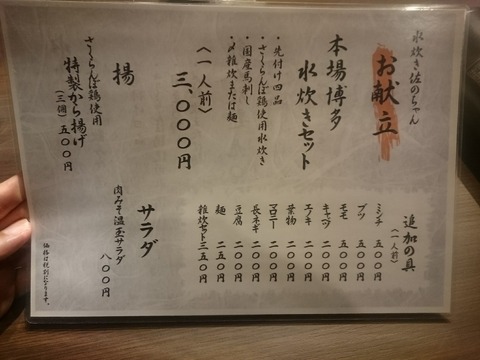 水炊き佐のちゃん
お献立
本場博多
水炊きセット
・先付け四品
・さくらんぼ鶏使用水炊き
・国産馬刺し
・〆雑炊または麺
〈一人前〉
三、〇〇〇円
揚
さくらんぼ鶏使用
特製から揚げ
(三個) 五〇〇円
追加の具
(一人前)
ミンチ 五〇〇円
ブツ 五〇〇円
モモ 五〇〇円
キャベツ 二〇〇円
エノキ 二〇〇円
葉物 二〇〇円
マロニー 二〇〇円
長ネギ 二〇〇円
豆腐 二〇〇円
麺 二五〇円
雑炊セット 三五〇円
サラダ
肉みそ温玉サラダ
八〇〇円
価格は税別になります。